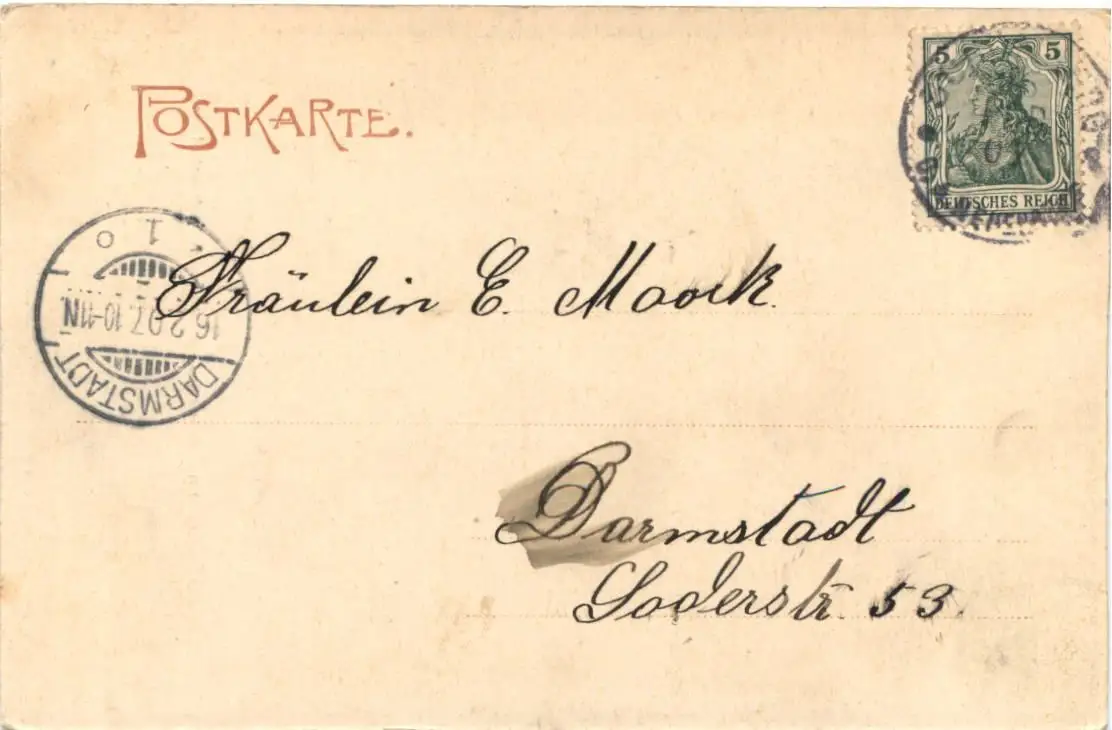 POSTKARTE.
5 5
DEUTSCHES REICH
1 o
16.2.07.10-11N.
DARMSTADT
Fräulein E. Moock.
Darmstadt
Soderstr. 53.